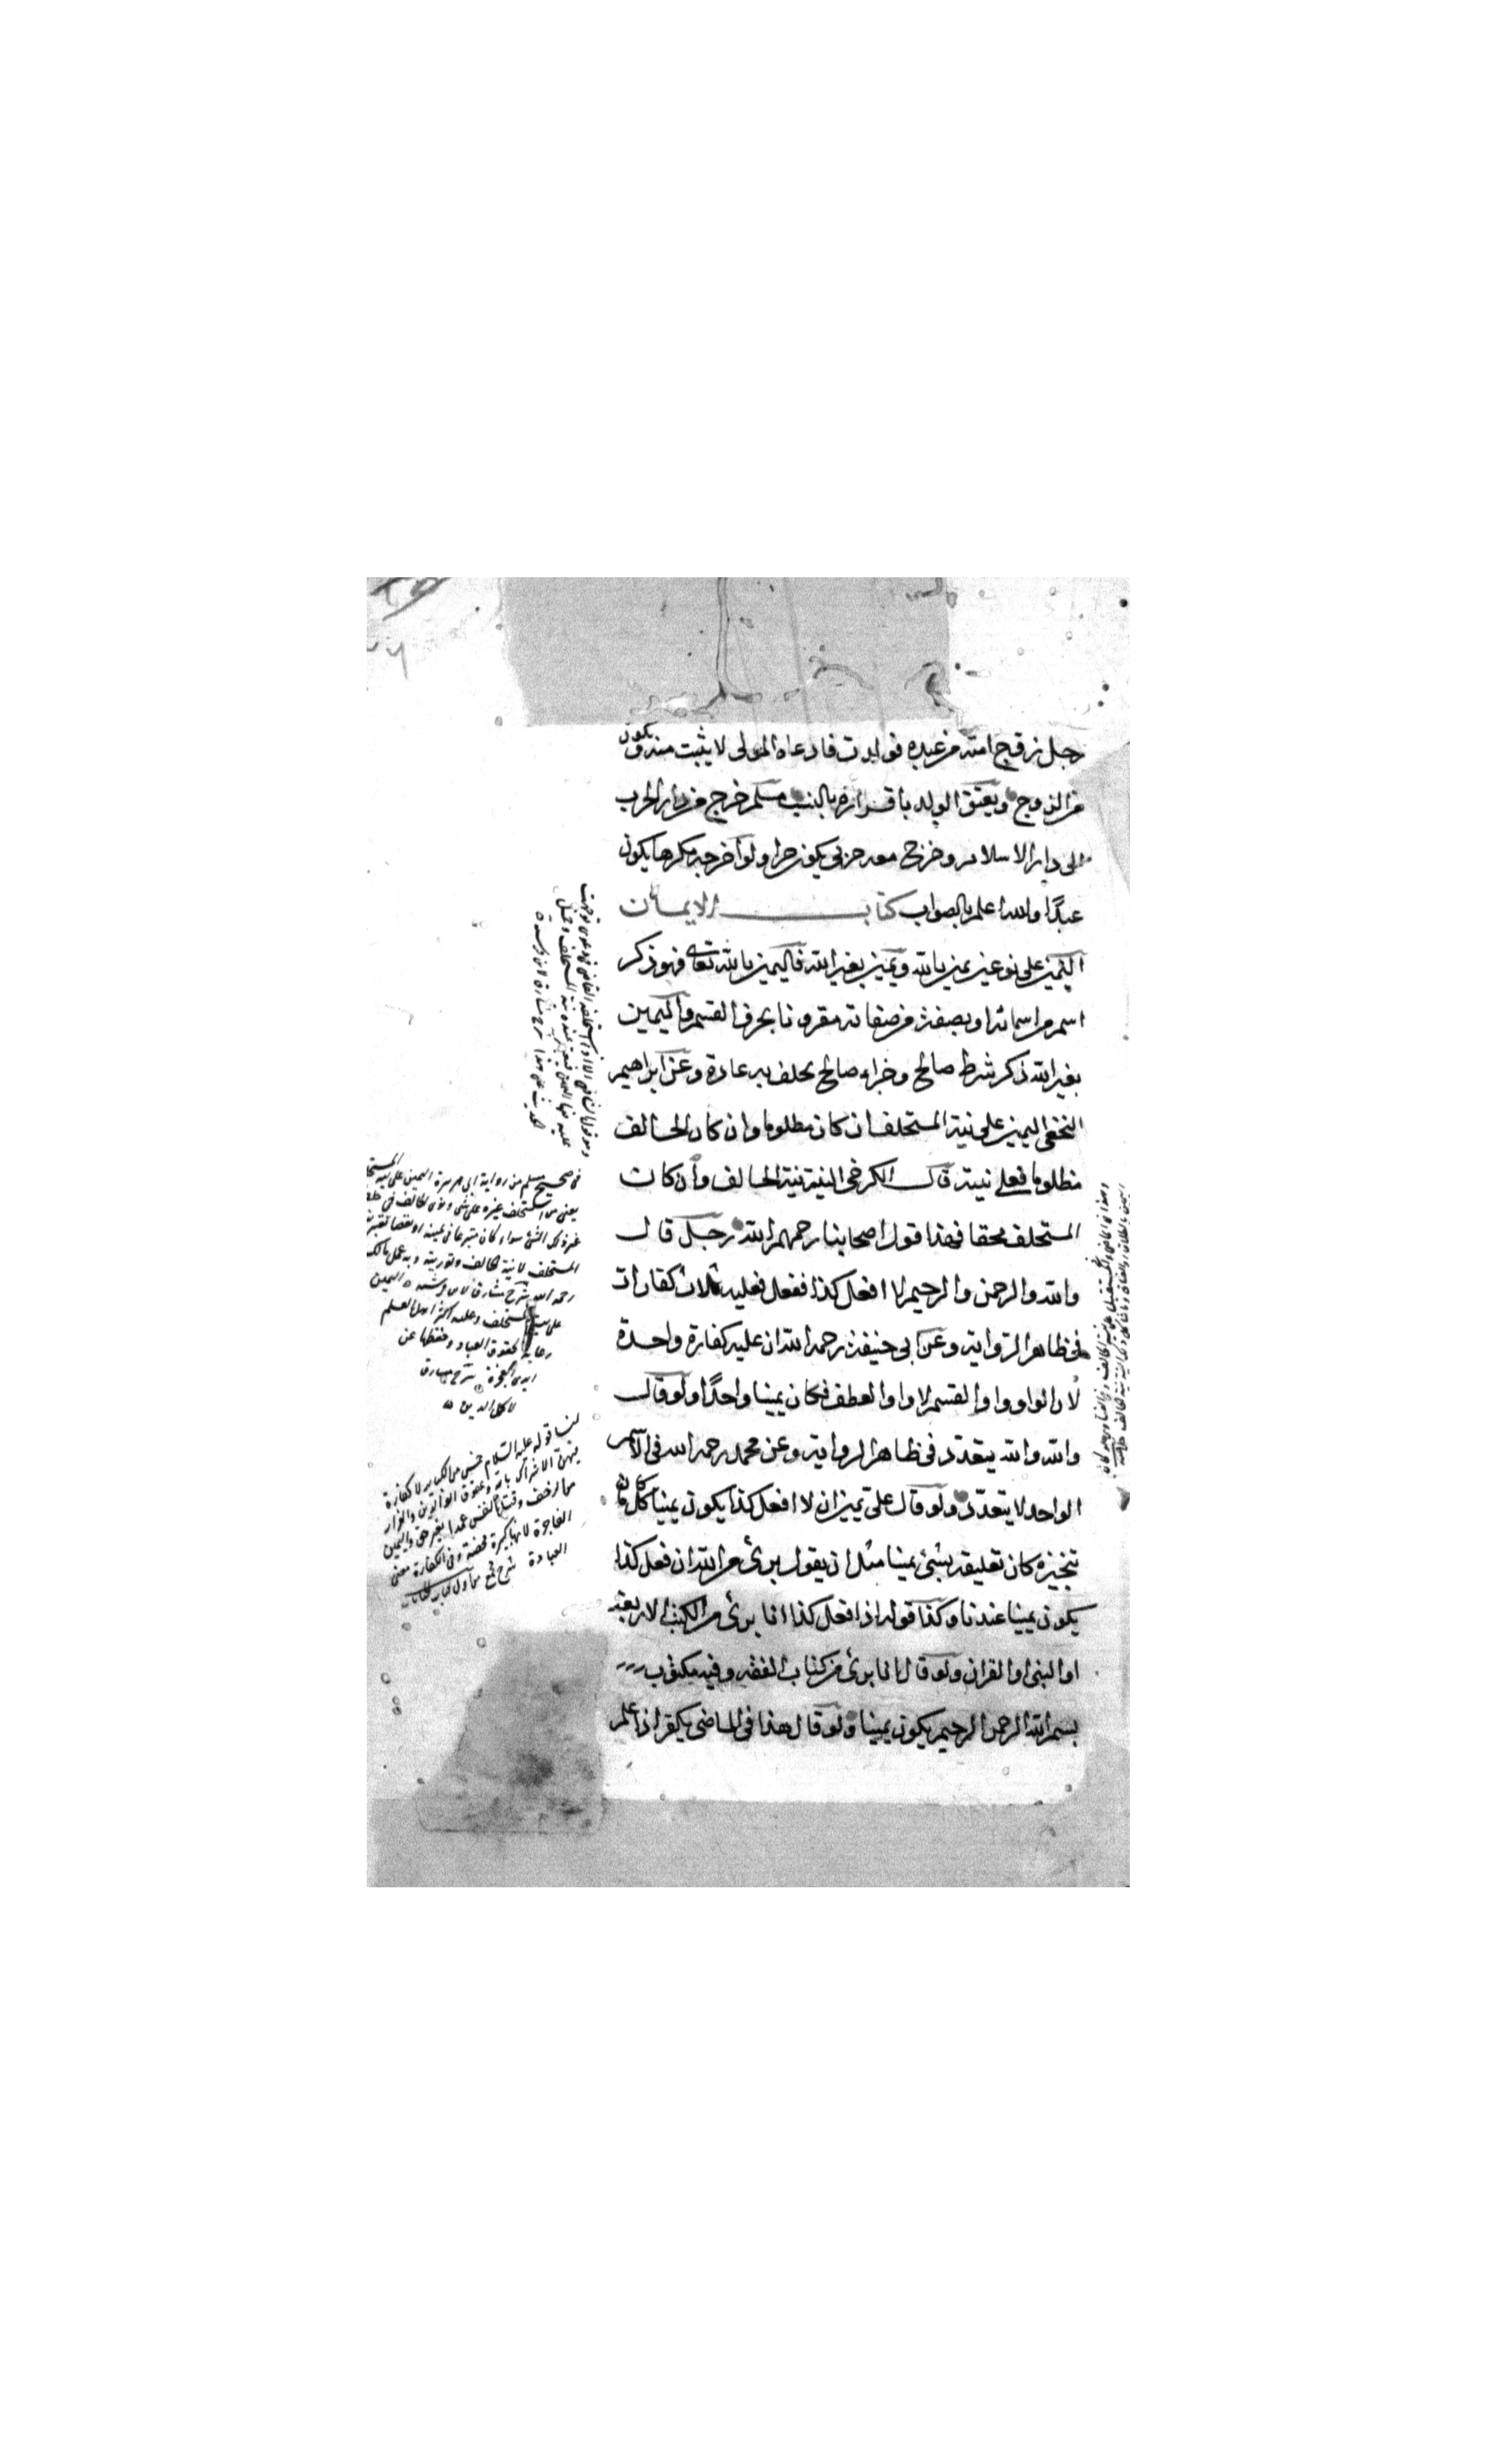 رجل زوج امته من عبده فولدت فادعاه المولى لا يثبت منه ويكون
من الزوج ويعتق الولد باقراره بالنسب مسلم خرج من دار الحرب
الى دار الاسلام وخرج معه حربي يكون حرا ولو اخرجه مكرها يكون
عبدًا والله اعلم بالصواب كتاب الايمان
اليمين على نوعين يمين بالله ويمين بغير الله فاليمين بالله تعالى فهو ذكر
اسم من اسمائه او بصفة من صفاته مقرونا بحرف القسم واليمين
بغير الله ذكر شرط صالح وجزاء صالح يحلف به عادة وعن ابراهيم
النخعي اليمين على نية المستحلف ان كان مظلوما وان كان الحالف
مظلوما فعلى نيته قال الكرخي النية نية الحالف وان كان
المستحلف محقا فهذا قول اصحابنا رحمهم الله رجل قال
والله والرحمن والرحيم لا افعل كذا ففعل فعليه ثلاث كفارات
في ظاهر الرواية وعن ابي حنيفة رحمه الله ان عليه كفارة واحدة
لان الواو واو القسم لا واو العطف فكان يمينا واحدًا ولو قال
والله والله يتعدد في ظاهر الرواية وعن محمد رحمه الله في الاسم
الواحد لا يتعدد ولو قال على يمين ان لا افعل كذا يكون يمينا كل ما كان
تنجيزه كان تعليقه بشئ يمينا مثل ان يقول برئ من الله ان فعل كذا
يكون يمينا عندنا وكذا قوله اذا فعل كذا انا برئ من الكتب الاربعة
او النبي او القران ولو قال انا برئ من كتاب الفقه وفيه مكتوب
بسم الله الرحمن الرحيم يكون يمينا ولو قال هذا في الماضي يكفر اذا علم
في صحيح مسلم من رواية ابي هريرة اليمين على نية المستحلف
يعني من استحلف غيره على شئ ونوى الحالف في
المستحلف لا نية الحالف وتوريته وبه عمل مالك
رحمه الله شرح مشارق لابن فرشته اليمين
على نية المستحلف وعليه اكثر اهل العلم
رعاية لحقوق العباد وحفظها عن
ايدي الفجرة شرح مشارق
لاكمل الدين
لنا قوله عليه السلام خمس من الكبائر لا كفارة
فيهن الاشراك بالله وعقوق الوالدين والفرار
من الزحف وقتل النفس عمدا بغير حق واليمين
الفاجرة لانها كبيرة محضة وفي الكفارة معنى
العبادة شرح